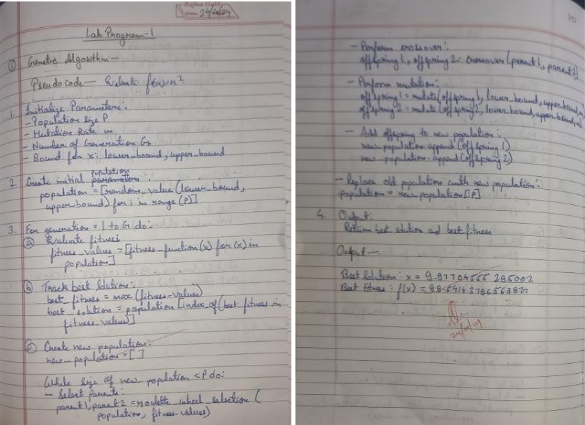 Lab Program-1
① Genetic Algorithm -
Pseudocode -
1. Initialize Parameters:
- Population size P
- Mutation Rate m
- Number of Generation G
- Bound for x: lower-bound, upper-bound
2. Create initial population
population = [random_value (lower-bound,
upper-bound) for i in range (P)]
3. For generation = 1 to G do:
ⓐ Evaluate fitness
fitness_values = [fitness-function(x) for (x) in
population]
ⓑ Track best solution:
best_fitness = max (fitness-values)
best_solution = population [index_of (best fitness in
fitness_values)]
ⓒ Create new population:
new_population = [ ]
While size of new population < P do:
- Select Parents:
parent1, parent2 = roulette wheel selection (
population, fitness-values)
- Perform crossover:
offspring1, offspring2 = crossover (parent1, parent2)
- Perform mutation:
offspring1 = mutate (offspring1, lower_bound, upper_bound, m)
offspring2 = mutate (offspring2, lower_bound, upper_bound, m)
- Add offspring to new population:
new_population.append (offspring1)
new_population.append (offspring2)
- Replace old population with new population:
population = new_population [:P]
4. Output:
Return best solution and best fitness
Output -
Best Solution: x =
Best fitness: f(x) =